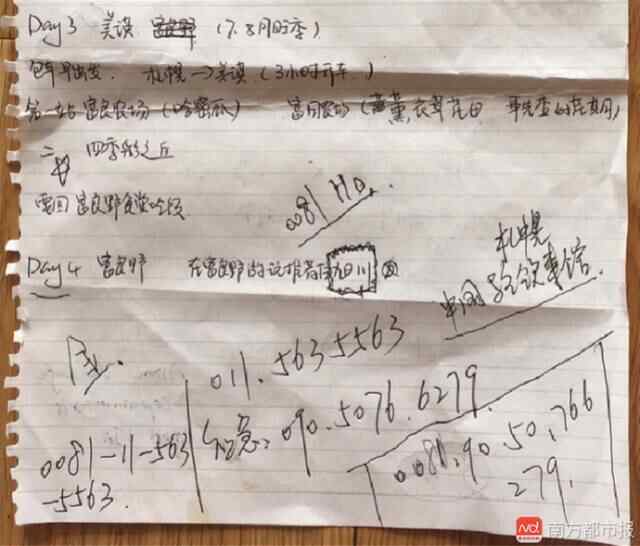 Day 3 美瑛 富良野 (7.8月旺季)
早出发. 札幌→美瑛(3小时开车.)
第一站富良农场(哈密瓜) 富田农场(薰衣草花田 事先查的花期)
二 四季彩之丘
富良野
0081 Ho.
Day 4 富良野 在富良野的话推荐 旭川
札幌
中国 领事馆.
011.563 5563
0081-11-563
-5563.
急: 090.5076.6279
0081.90.50.766
279.
南方都市报